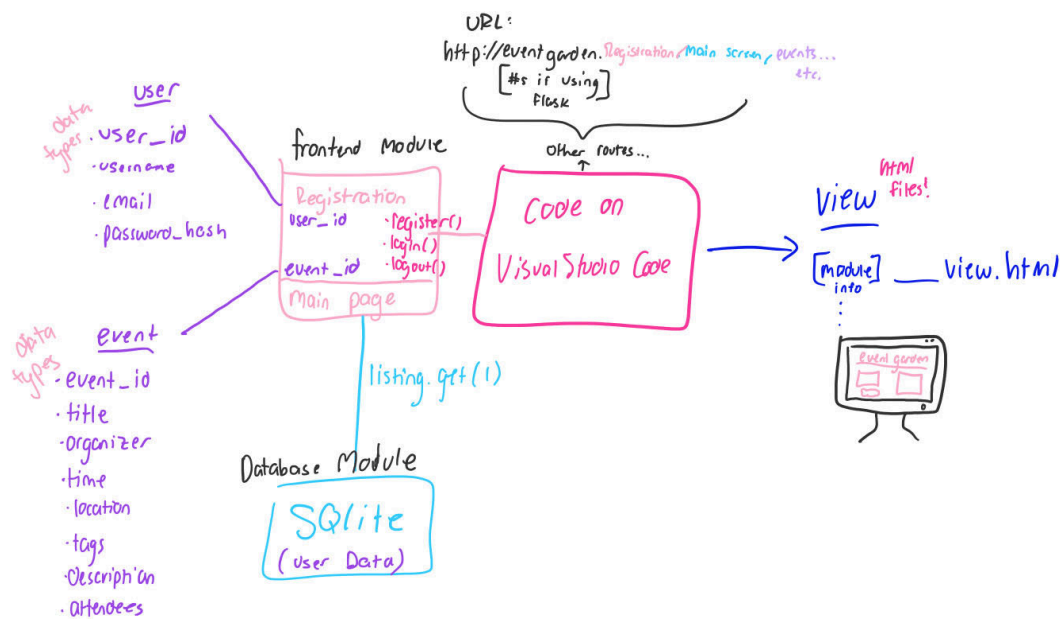 URL:
http://eventgarden.Registration/main screen, events...
etc.
[#s if using]
Flask
user
data
types
· user_id
· username
· email
· password_hash
frontend Module
Registration
user_id
· register()
· login()
event_id
· logout()
Main page
Other routes...
Code on
Visual Studio Code
html
files!
View
[module]
info
___view.html
event garden
event
data
types
· event_id
· title
· organizer
· time
· location
· tags
· Description
· attendees
listing.get(1)
Database Module
SQlite
(User Data)